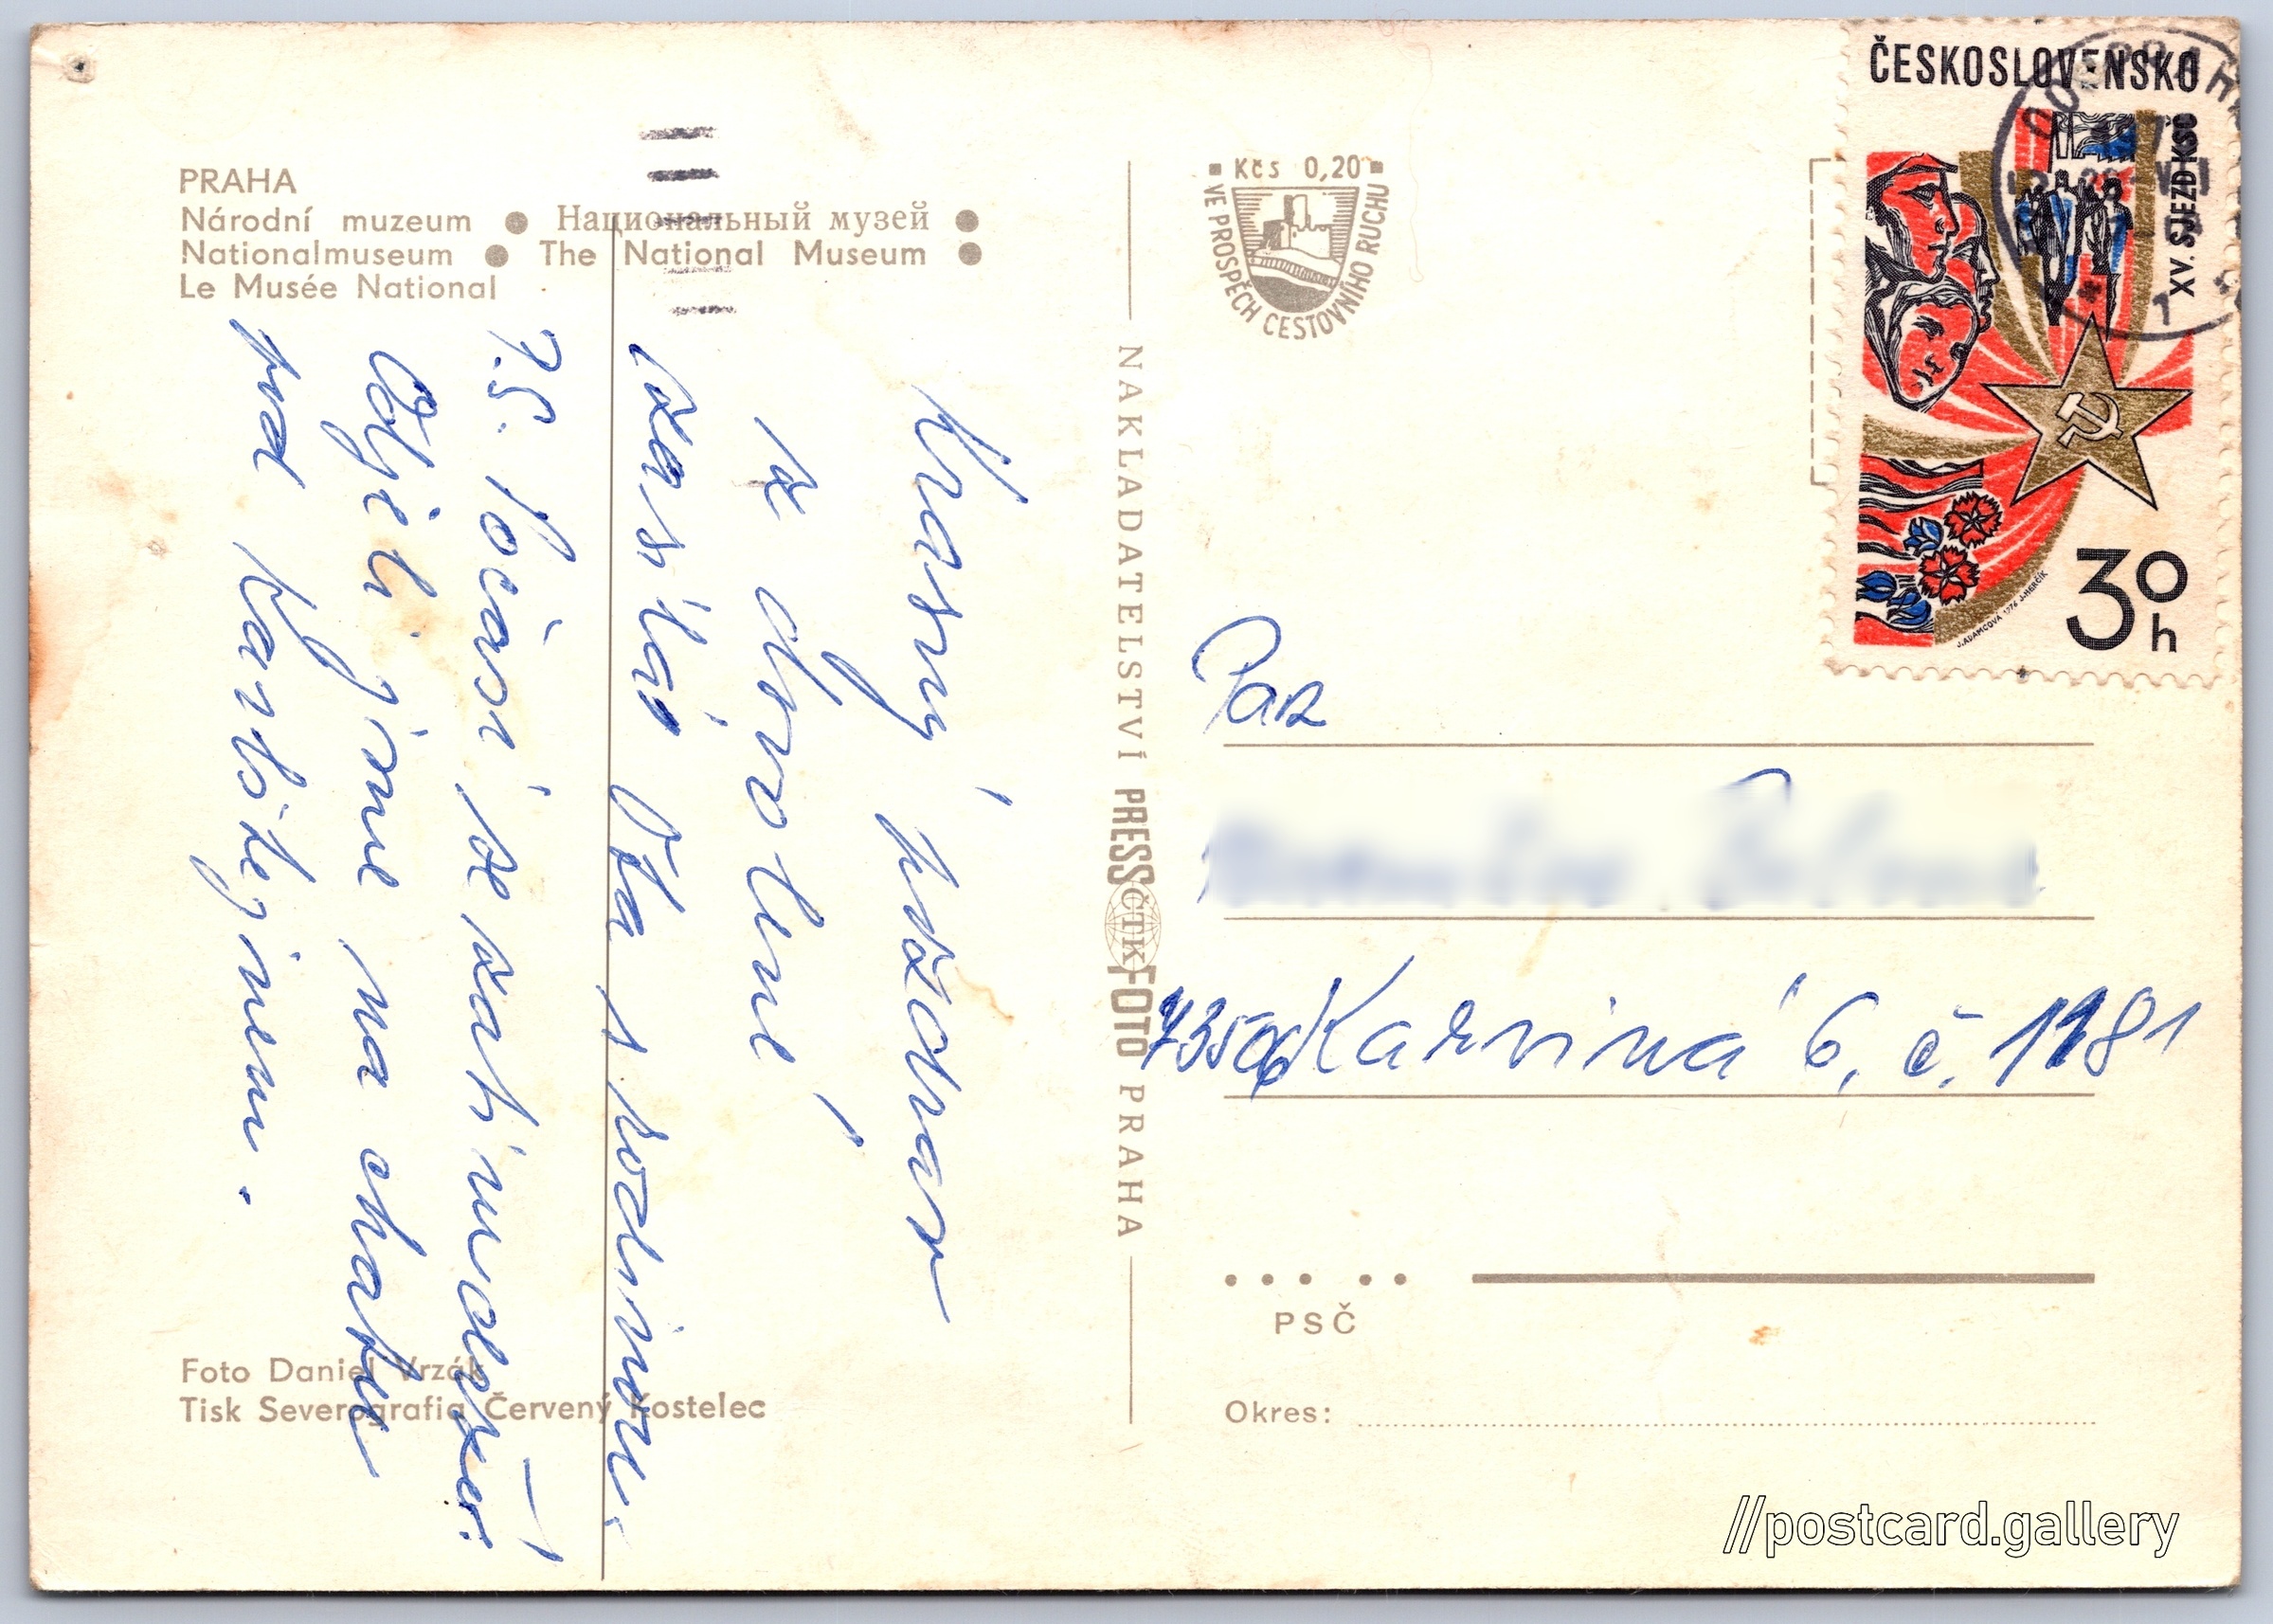 PRAHA
Národní muzeum ● Национальный музей ●
Nationalmuseum ● The National Museum ●
Le Musée National
Krásný pozdrav
z dovolené
zasílá Ota s rodinou.
7.5. Počasí se
Odjeli jsme na chatu
pod Karlštejnem.
Foto Daniel Vrzák
Tisk Severografia Červený Kostelec
NAKLADATELSTVÍ PRESSFOTO PRAHA
ČTK
Kčs 0,20
VE PROSPĚCH CESTOVNÍHO RUCHU
ČESKOSLOVENSKO
XV. SJEZD KSČ
30h
J. ADAMCOVÁ 1976 J. HERČÍK
1
Pan
73506 Karviná 6, č. 1181
PSČ
Okres:
//postcard.gallery